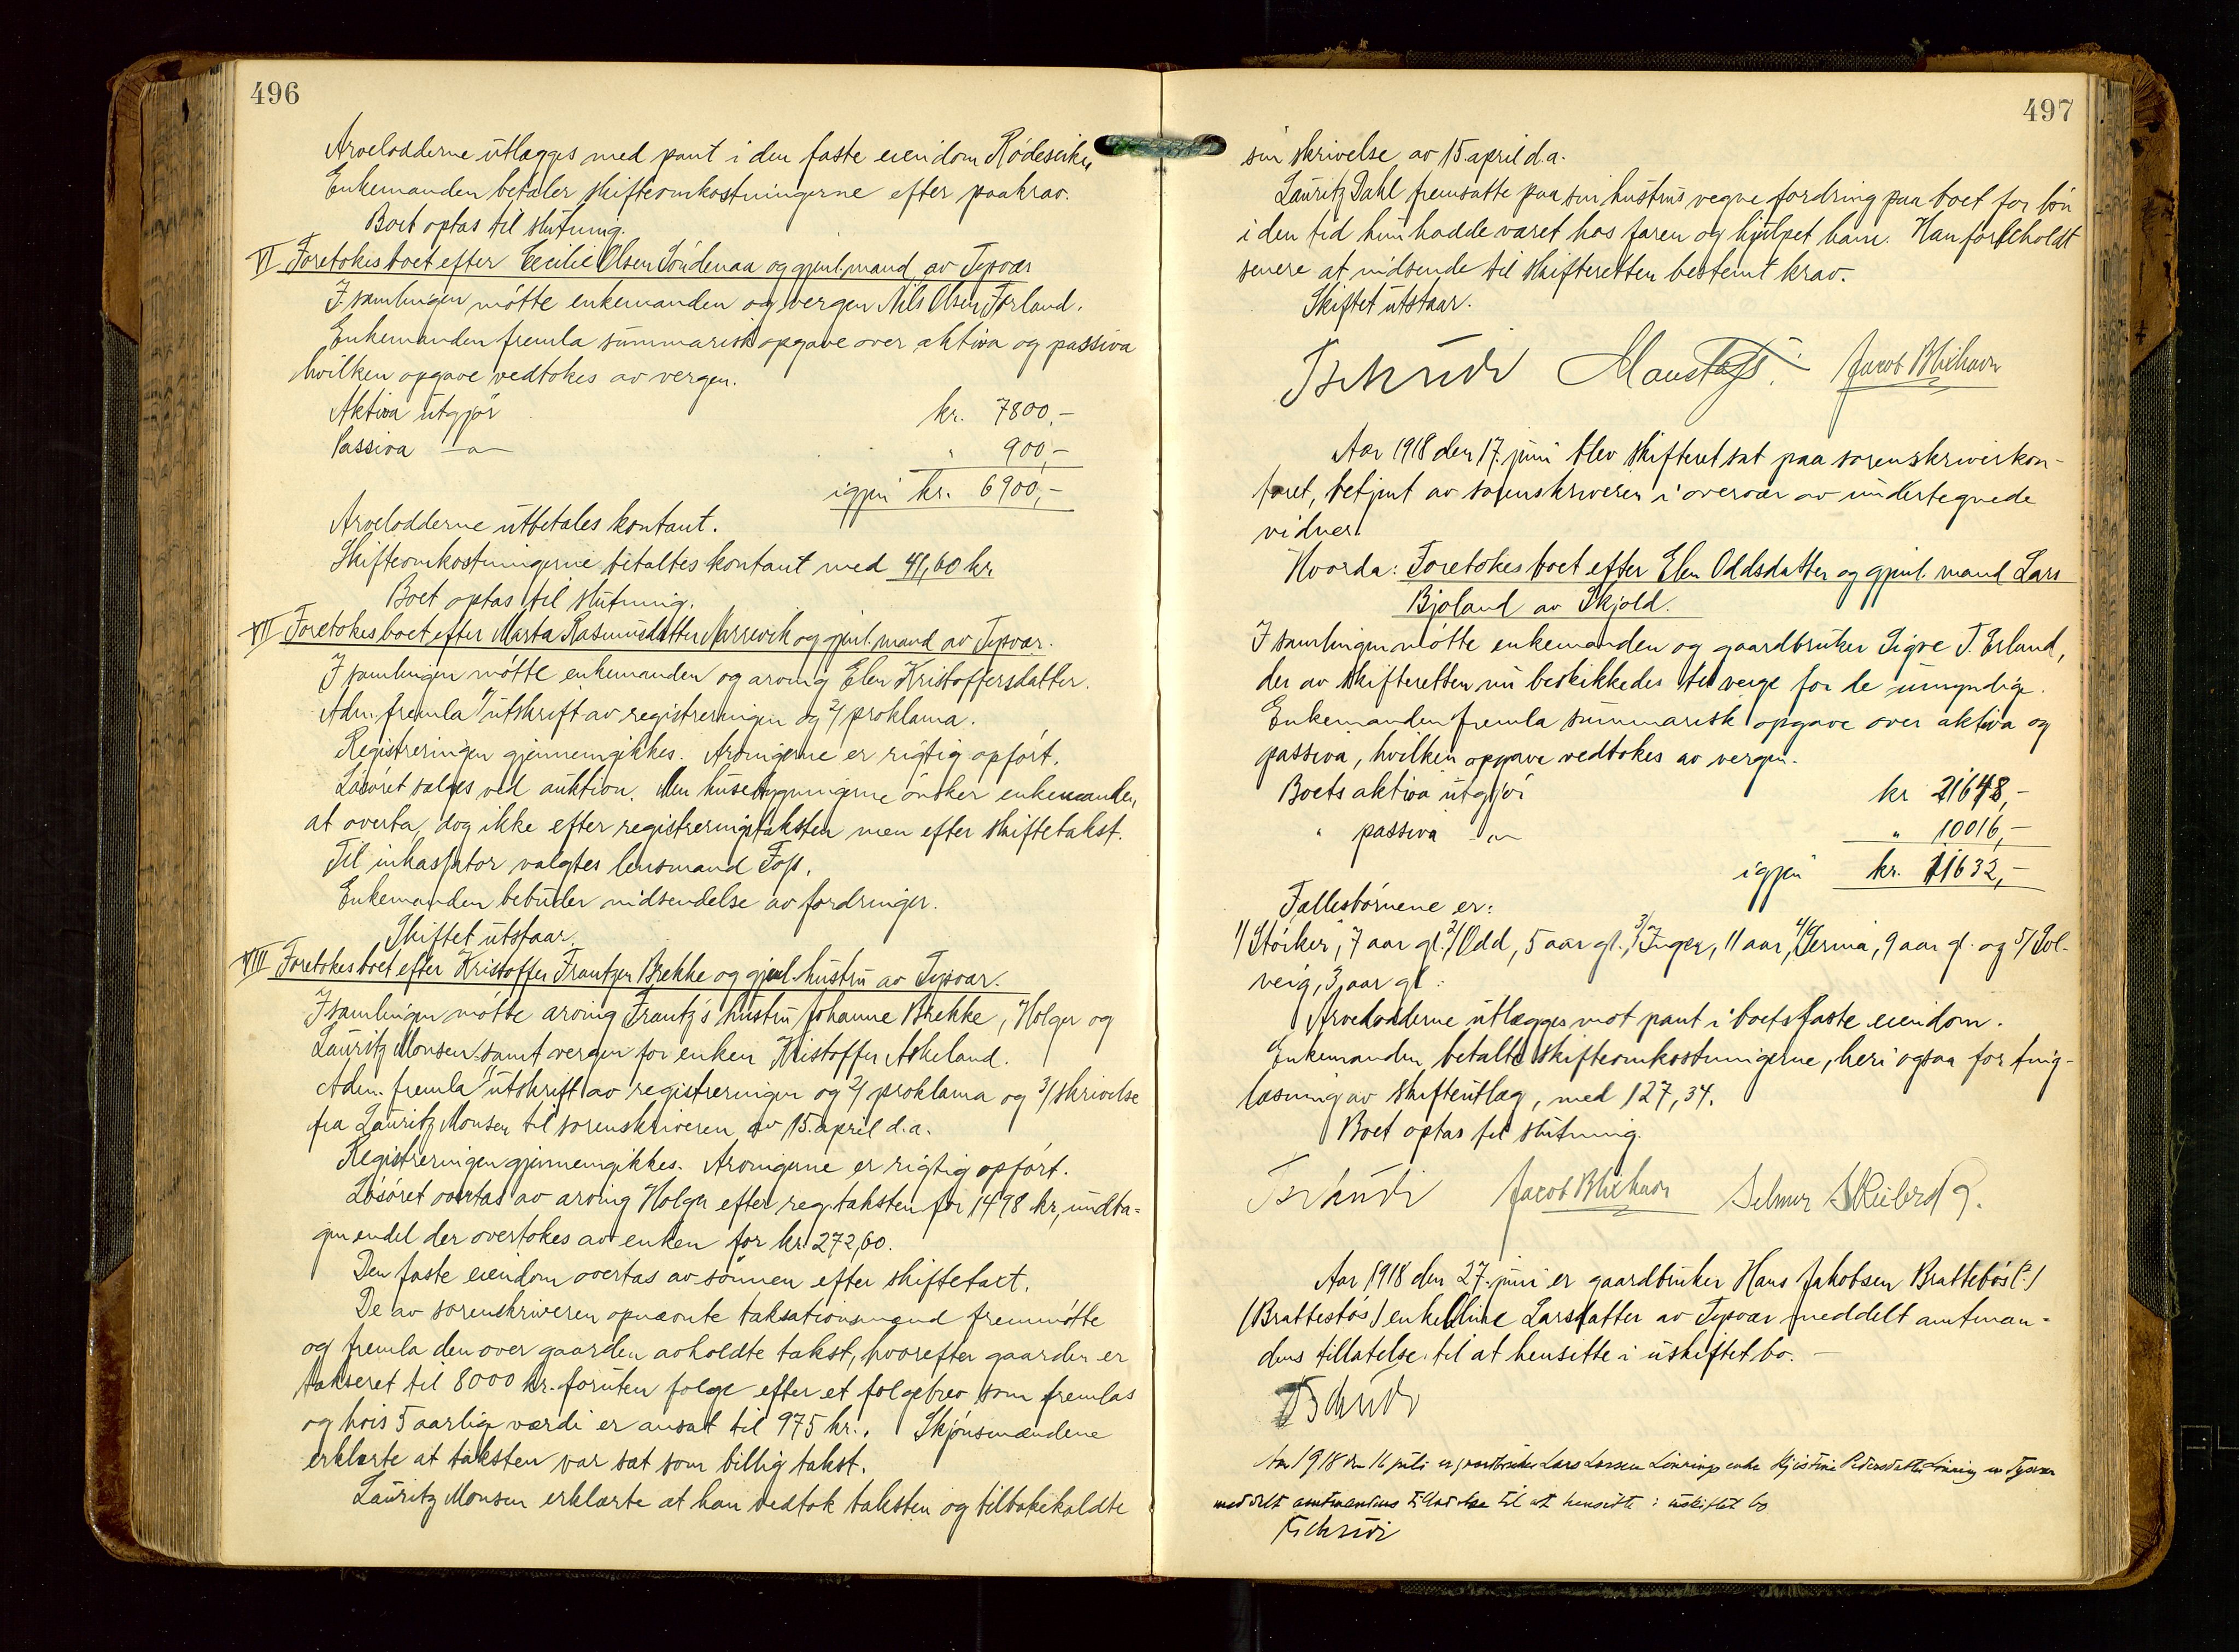 496
Arvelodderne utlægges med pant i den faste eiendom
Enkemanden betaler skifteomkostningerne efter paakrav.
Boet optas til slutning.
VI Foretokes boet efter Cecilie Olsen Søndenaa og gjenl. mand av Tysvær
I samlingen møtte enkemanden og vergen Nils Olsen Førland.
Enkemanden fremla summarisk opgave over aktiva og passiva
hvilken opgave vedtokes av vergen.
Aktiva utgjør kr. 7800,-
Passiva -"- " 900,-
igjen kr. 6900,-
Arvelodderne utbetales kontant.
Skifteomkostningerne betaltes kontant med 41,60 kr
Boet optas til slutning.
VII Foretokes boet efter Marta Rasmusdatter Narrevik og gjenl. mand av Tysvær.
I samlingen møtte enkemanden og arving Elen Kristoffersdatter.
Adm. fremla 1/ utskrift av registreringen og 2/ proklama.
Registreringen gjennemgikkes. Arvingerne er rigtig opført.
Løsøret sælges ved auktion. Men husebygningerne ønsker enkemanden
at overta, dog ikke efter registreringstaksten men efter skiftetakst.
Til inkassator valgtes lensmand Foss.
Enkemanden bebuder indsendelse av fordringer.
Skiftet utstaar.
VIII Foretokes boet efter Kristoffer Frantzen Brekke og gjenl. hustru av Tysvær.
I samlingen møtte arving Frantz's hustru Johanne Brekke, Holger og
Lauritz Monsen samt vergen for enken Kristoffer Askeland.
Adm. fremla 1/ utskrift av registreringen og 2/ proklama og 3/ skrivelse
fra Lauritz Monsen til sorenskriveren av 15. april d.a.
Registreringen gjennemgikkes. Arvingerne er rigtig opført.
Løsøret overtas av arving Holger efter reg. taksten for 1498 kr, undta-
gen endel der overtokes av enken for kr. 272,60.
Den faste eiendom overtas av sønnen efter skiftetaxt.
De av sorenskriveren opnævnte taksationsmænd fremmøtte
og fremla den over gaarden avholdte takst, hvorefter gaarden er
takseret til 8000 kr. foruten følge efter et følgebrev som fremlas
og hvis 5 aarlige værdi er ansat til 975 kr.. Skjønsmændene
erklærte at taksten var sat som billig takst.
Lauritz Monsen erklærte at han vedtok taksten og tilbakekaldte
497
sin skrivelse av 15. april d.a.
Lauritz Dahl fremsatte paa sin hustrus vegne fordring paa boet for løn
i den tid hun hadde været hos faren og hjulpet ham. Han forbeholdt
senere at indsende til skifteretten bestemt krav.
Skiftet utstaar.
Tschudi Jacob Blixhavn
Aar 1918 den 17. juni blev skifteret sat paa sorenskriverkon-
toret, betjent av sorenskriveren i overvær av undertegnede
vidner.
Hvorda: Foretokes boet efter Elen Oddsdatter og gjenl. mand Lars
Bjoland av Skjold.
I samlingen møtte enkemanden og gaardbruker Sigve T. Erland,
der av skifteretten nu beskikkedes til verge for de umyndige.
Enkemanden fremla summarisk opgave over aktiva og
passiva, hvilken opgave vedtokes av vergen.
Boets aktiva utgjør kr 21648,-
" passiva -"- " 10016,-
igjen kr. 11632,-
Fællesbørnene er:
1/ Størker, 7 aar gl. 2/ Odd, 5 aar gl., 3/ Inger, 11 aar, 4/ Jerma, 9 aar gl. og 5/ Sol-
veig, 3 aar gl.
Arvelodderne utlægges mot pant i boets faste eiendom.
Enkemanden betalte skifteomkostningerne, heri ogsaa for ting-
læsning av skifteutlæg, med 127,34.
Boet optas til slutning.
Tschudi Jacob Blixhavn Selmer
Aar 1918 den 27. juni er gaardbruker Hans Jakobsen Brattebøs (?)
(Brattestøs) enke Line Larsdatter av Tysvær meddelt amtman-
dens tillatelse til at hensitte i uskiftet bo.
Tschudi
Aar 1918 den 16 juli er gaardbruker Lars Larsen Lønnings enke Kjistine Pedersdatter Lønning av Tysvær
meddelt amtmandens tilladelse til at hensidte i uskiftet bo
Tschudi